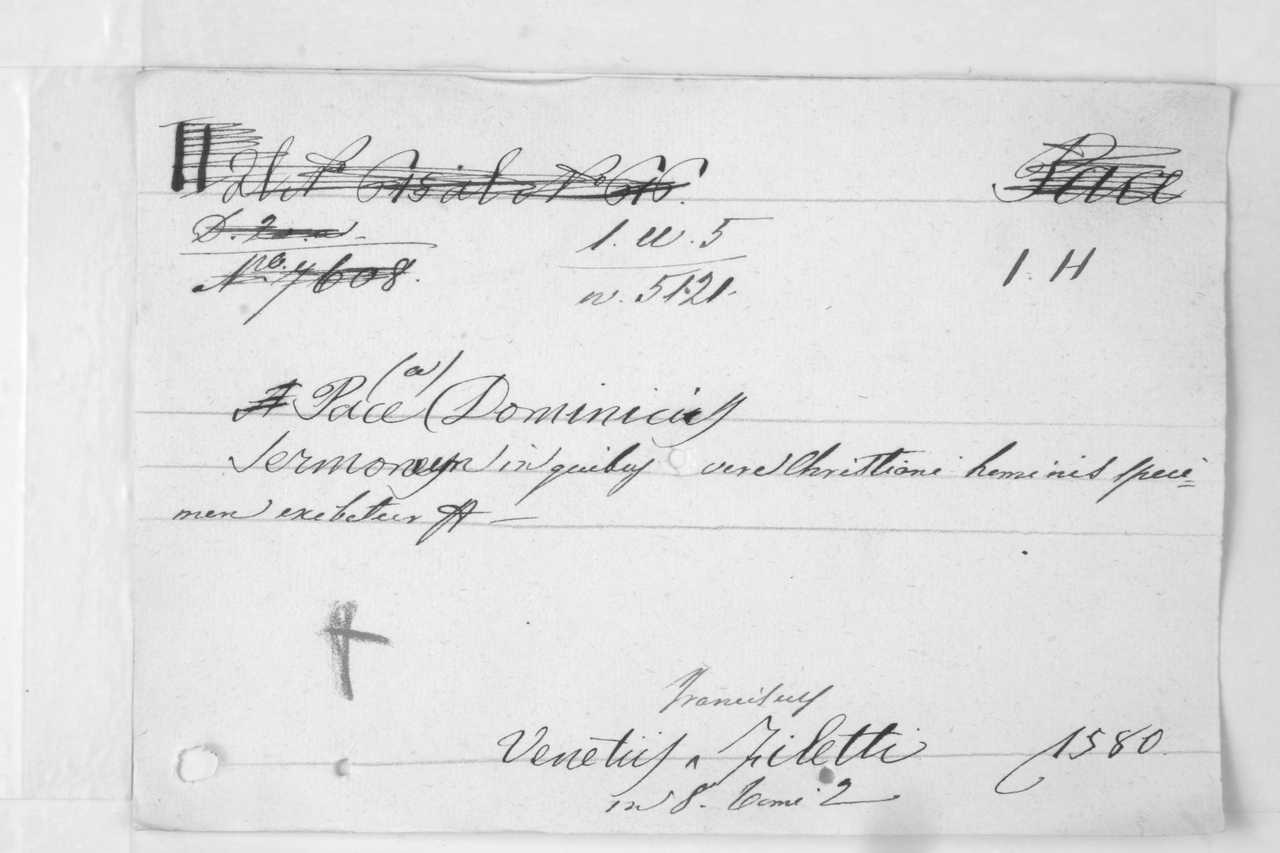 Pace
D.
Nro. 7608.
1. U. 5
n. 5121.
1. H
Pace (a) (Dominicus
Sermonum in quibus vere Christiani hominis speci=
men exibetur
Franciscus
Venetiis Ziletti 1580.
in 8. Tomi 2